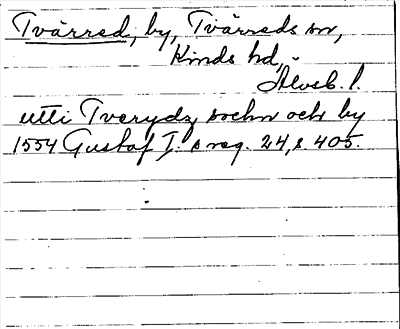 Tvärred, by, Tvärreds sn,
Kinds hd,
Älvsb. l.
utti Tverydz sochn och by
1554 Gustaf I.s reg. 24, s. 405.